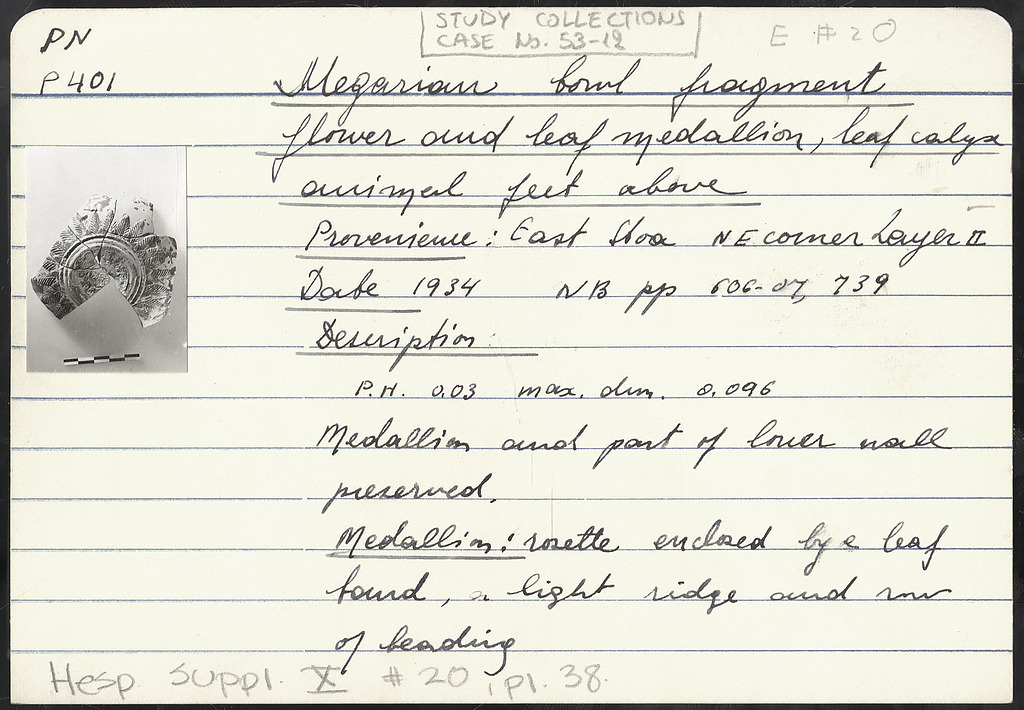 STUDY COLLECTIONS
CASE No. 53-12
E # 20
PN
P 401
Megarian bowl fragment
flower and leaf medallion, leaf calyx
animal feet above
Provenience: East Stoa NE corner Layer II
Date 1934 NB pp 606-07, 739
Description:
P.H. 0.03 max. dim. 0.096
Medallion and part of lower wall
preserved.
Medallion: rosette enclosed by a leaf
band, a light ridge and row
of beading
Hesp Suppl. X # 20, pl. 38.